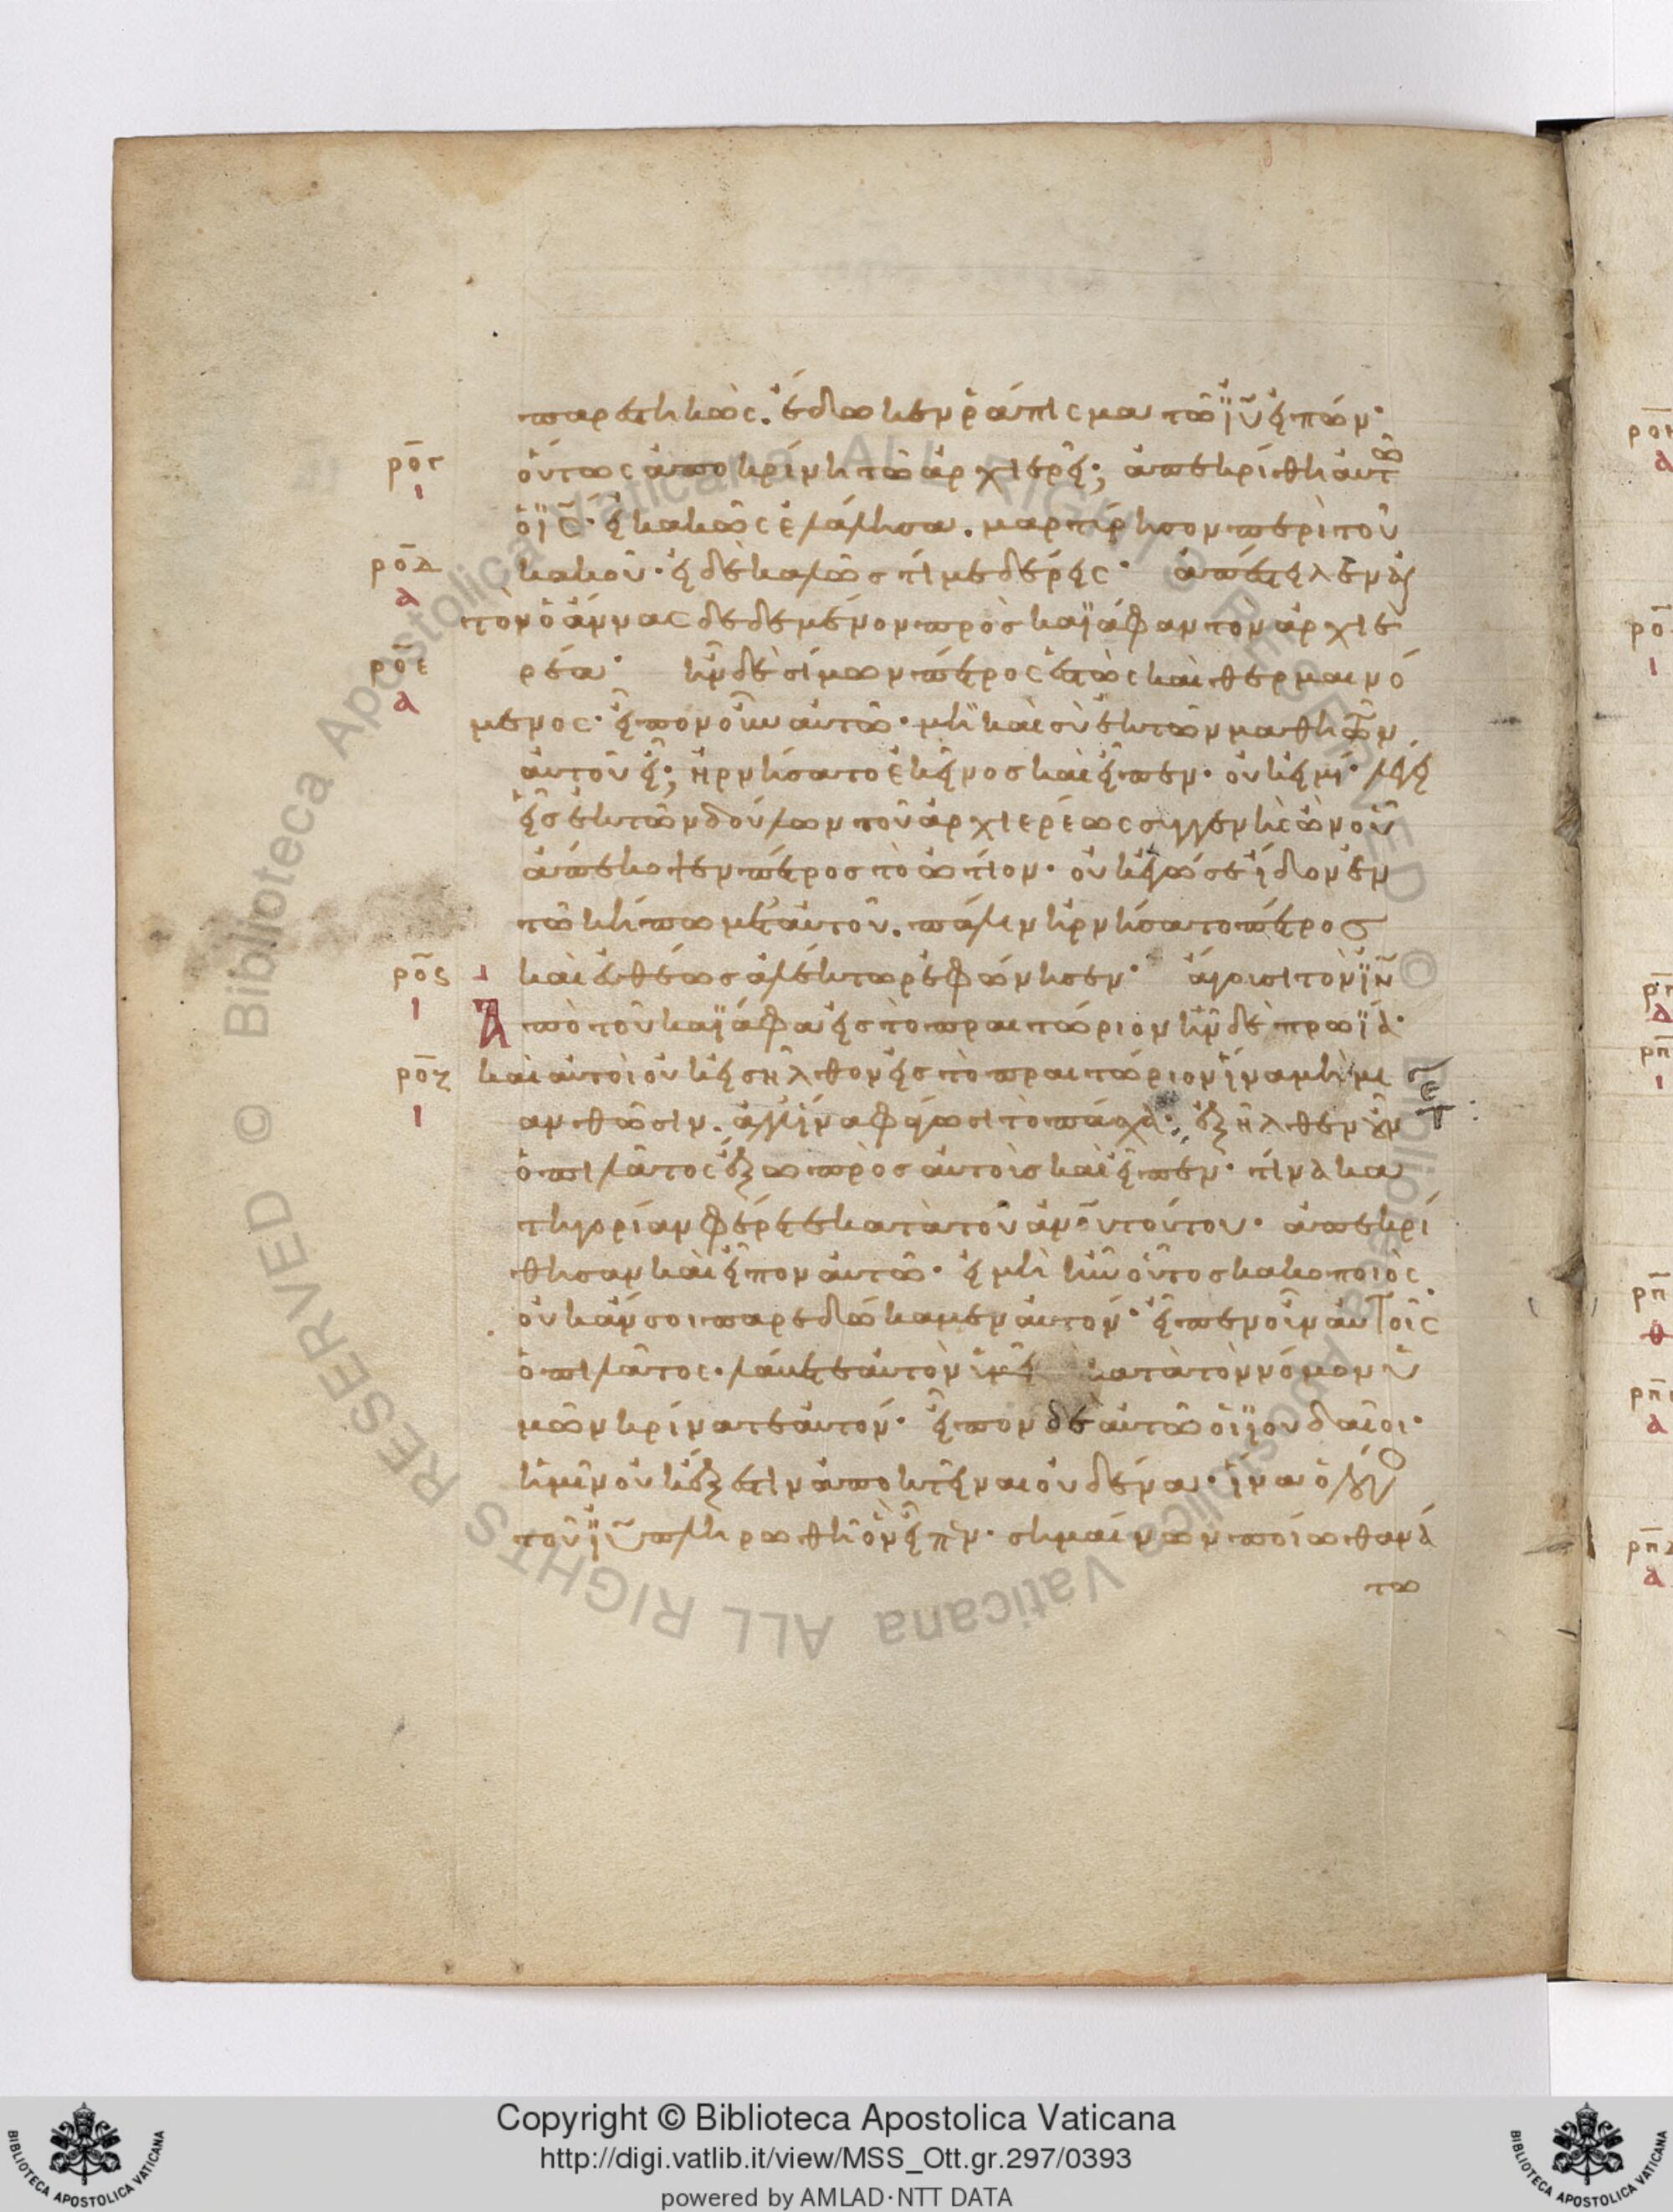 παρεστηκὼς. ἔδωκεν ῥάπισμα τῶ ϊῦ εἰπών·
ρογ ὅυτως ἀποκρίνη τῶ ἀρχιερεῖ; ἀπεκρίθη ἀυτῶ
ι
ὁ ϊς· εἰ κακῶς ἐλάλησα. μαρτύρησον περὶ τοῦ
ροδ κακοῦ· εἰ δὲ καλῶσ τί με δέρεις· ἀπέστειλεν δὲ
α
τὸν ὁ ἄννας δεδεμένον πρὸσ καϊάφαν τὸν ἀρχιε
ροε ρέα· ἦν δὲ σίμων πέτρος ἑστὼς καὶ θερμαινό
α
μενος· εἶπον οὖν ἀυτῶ· μὴ καὶ σὺ ἐκ τῶν μαθητῶν
ἀυτοῦ εἶ; ἠρνήσατο ἐκεῖνοσ καὶ εἶπεν· οὐκ εἰμί· λέγει
εἷσ ἐκ τῶν δούλων τοῦ ἀρχιερέως συγγενὴς ὢν οὗ
ἀπέκοψεν πέτροσ τὸ ὠτίον· οὐκ ἐγώ σε εἶδον ἐν
τῶ κήπω μετ' ἀυτοῦ. πάλιν ἠρνήσατο πέτροσ
ροϛ καὶ ἐυθέωσ ἀλέκτωρ ἐφώνησεν· ἄγουσι τὸν ϊν
ι
Ἀπὸ τοῦ καϊάφα εἰσ τὸ πραιτώριον ἦν δὲ πρωϊα·
ροζ καὶ ἀυτοὶ οὐκ εἰσῆλθον εἰσ τὸ πραιτώριον ἵνα μὴ μι
ι
ανθῶσιν. ἀλλ' ἵνα φάγωσι τὸ πάσχα· ἐξῆλθεν οὖν
ὁ πιλᾶτος ἔξω πρὸσ ἀυτοὺσ καὶ εἶπεν· τίνα κα
τηγορίαν φέρετε κατὰ τοῦ ἀνου τούτου· ἀπεκρί
θησαν καὶ εἶπον ἀυτῶ· εἰ μὴ ἦν οὗτοσ κακοποιὸς
οὐκ ἄν σοι παρεδώκαμεν ἀυτόν· εἶπεν οὖν ἀυτοῖς
ὁ πιλᾶτος· λάβετε ἀυτὸν ὑμεῖς κατὰ τὸν νόμον ὑ
μῶν κρίνατε ἀυτόν· εἶπον δὲ ἀυτῶ οἱ ϊουδαῖοι·
ἡμῖν οὐκ ἔξεστιν ἀποκτεῖναι οὐδένα· ἵνα ὁ λόγος
τοῦ ϊυ πληρωθῆ ὃν εἶπεν· σημαίνων ποίω θανά
τω
Copyright © Biblioteca Apostolica Vaticana
http://digi.vatlib.it/view/MSS_Ott.gr.297/0393
powered by AMLAD·NTT DATA